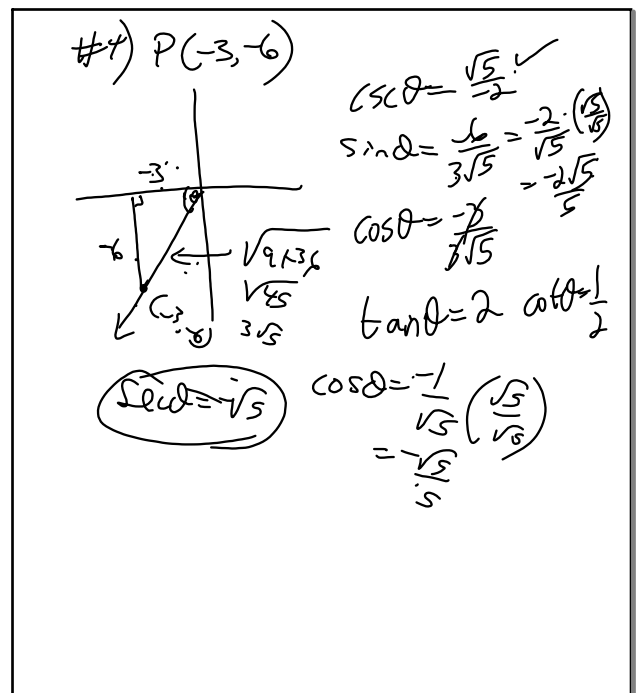 #4) P(-3,-6)
cscθ = √5/-2 ✓
sinθ = -6/3√5 = -2/√5 · (√5/√5)
= -2√5/5
-3
θ
-6
√9+36
√45
3√5
(-3, -6)
cosθ = -3/3√5
tanθ = 2 cotθ = 1/2
secθ = -√5
cosθ = -1/√5 (√5/√5)
= -√5/5